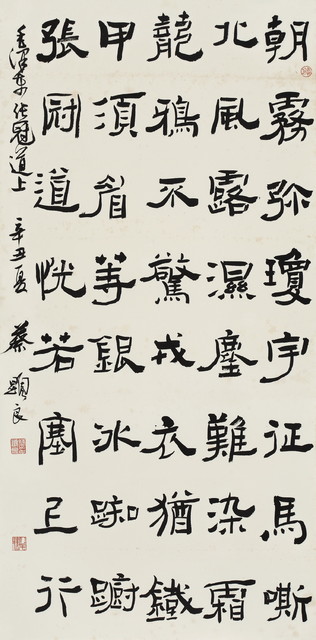 朝霧弥瓊宇征馬嘶
北風露濕塵難染霜
籠鴉不驚戎衣猶鐵
甲須眉等銀冰踟躕
張冠道恍若塞上行
毛澤東張冠道上 辛丑夏 蔡顯良